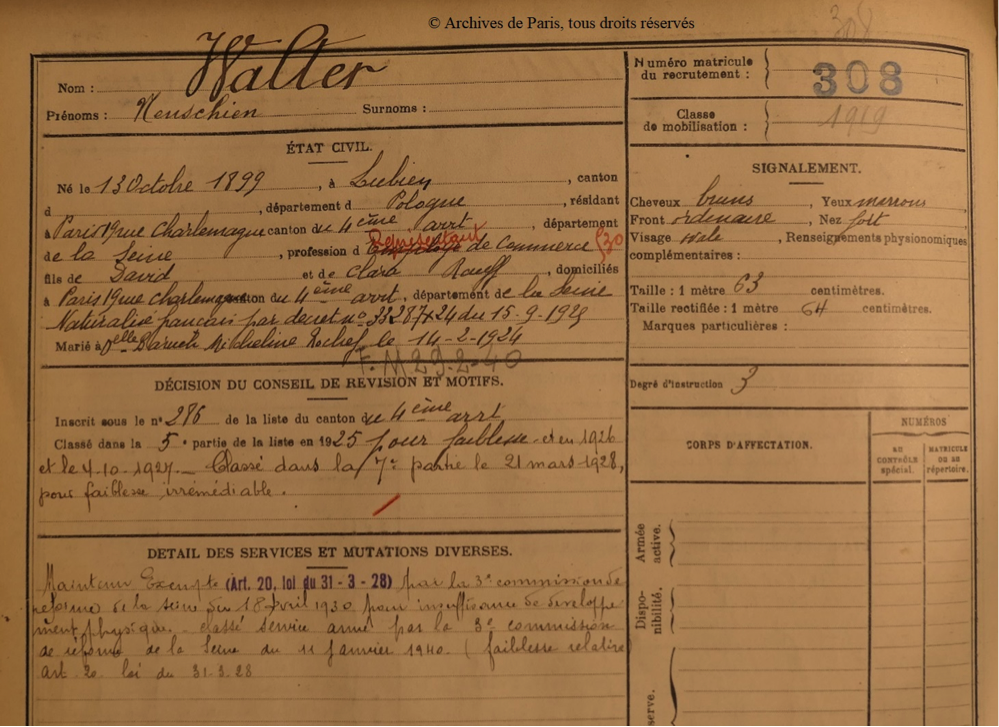 © Archives de Paris, tous droits réservés
308
Nom : Walter
Prénoms : Neuschien Surnoms :
Numéro matricule du recrutement : 308
Classe de mobilisation : 1919
ÉTAT CIVIL.
Né le 13 Octobre 1899, à Lubien, canton
d , département d Pologne, résidant
à Paris 19 rue Charlemagne canton du 4ème arrt, département
de la Seine, profession d Représentant de Commerce (30
fils de David et de Clara Rouff, domiciliés
à Paris 19 rue Charlemagne canton du 4ème arrt, département de la Seine
Naturalisé français par décret no 33287x24 du 15-9-1925
Marié à Delle Micheline Rochel le 14-2-1924
F.M 29-2-40
SIGNALEMENT.
Cheveux bruns, Yeux marrons
Front ordinaire, Nez fort
Visage ovale, Renseignements physionomiques
complémentaires :
Taille : 1 mètre 63 centimètres.
Taille rectifiée : 1 mètre 64 centimètres.
Marques particulières :
Degré d'instruction 3
DÉCISION DU CONSEIL DE REVISION ET MOTIFS.
Inscrit sous le no 276 de la liste du canton du 4ème arrt
Classé dans la 5e partie de la liste en 1925 pour faiblesse et en 1926
et le 4-10-1927 _ Classé dans la 7e partie le 21 mars 1928,
pour faiblesse irrémédiable.
CORPS D'AFFECTATION.
NUMÉROS
AU CONTRÔLE spécial.
MATRICULE OU AU répertoire.
Armée active.
Disponibilité.
serve.
DETAIL DES SERVICES ET MUTATIONS DIVERSES.
Maintenu Exempté (Art. 20, loi du 31-3-28) par la 3e commission de
réforme de la Seine du 18 Avril 1930 pour insuffisance de développe
ment physique. - classé service armé par la 3e commission
de réforme de la Seine du 11 Janvier 1940. (faiblesse relative
art. 20 loi du 31.3.28